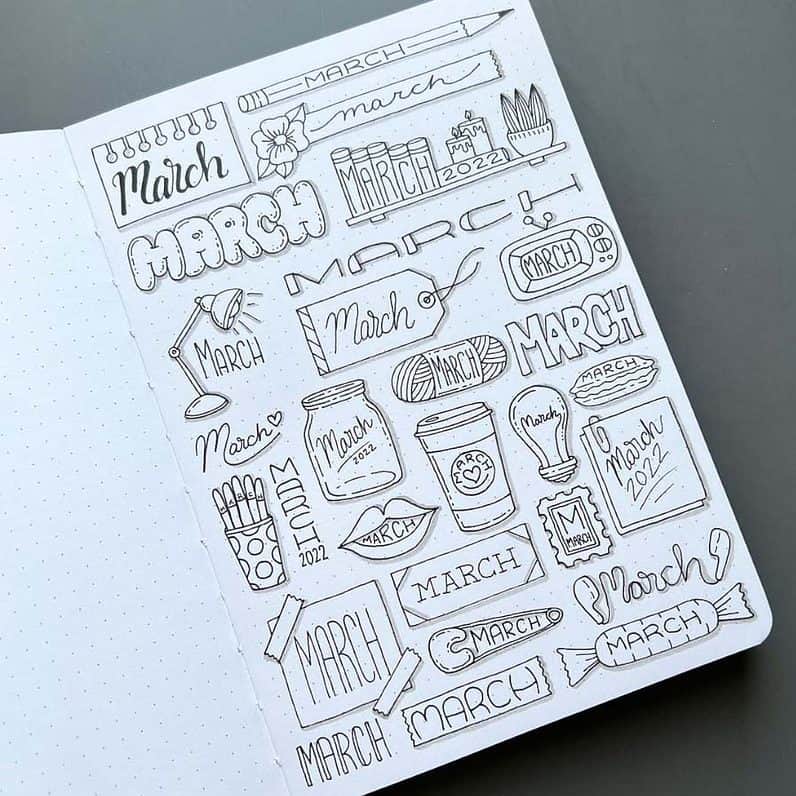 MARCH
march
March
MARCH
2022
MARCH
MARCH
MARCH
March
MARCH
MARCH
MARCH
MARCH
March
March
2022
March
March
2022
MARCH
MARCH
MARCH
2022
MARCH
M
MARCH
MARCH
March
MARCH
MARCH
MARCH
MARCH
MARCH